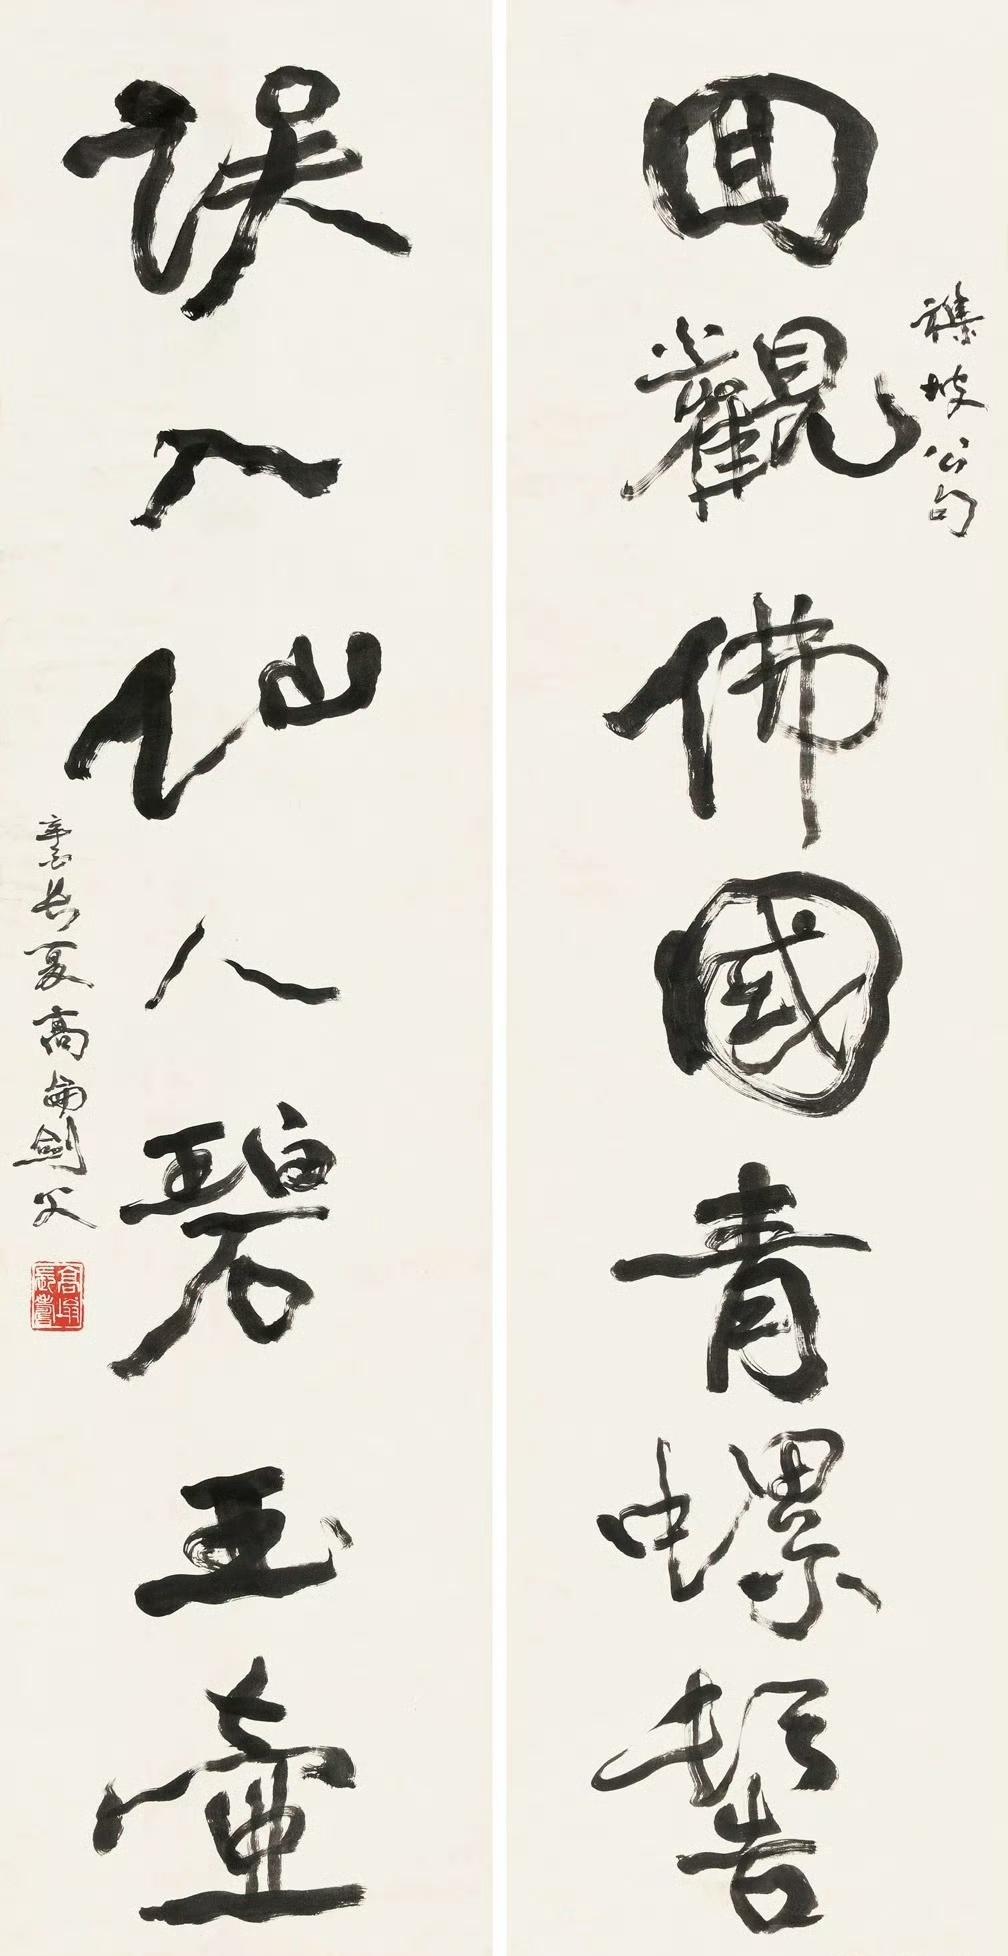 回觀佛國青螺髻
集坡公句
誤入仙人碧玉壺
辛酉長夏高崙劍父